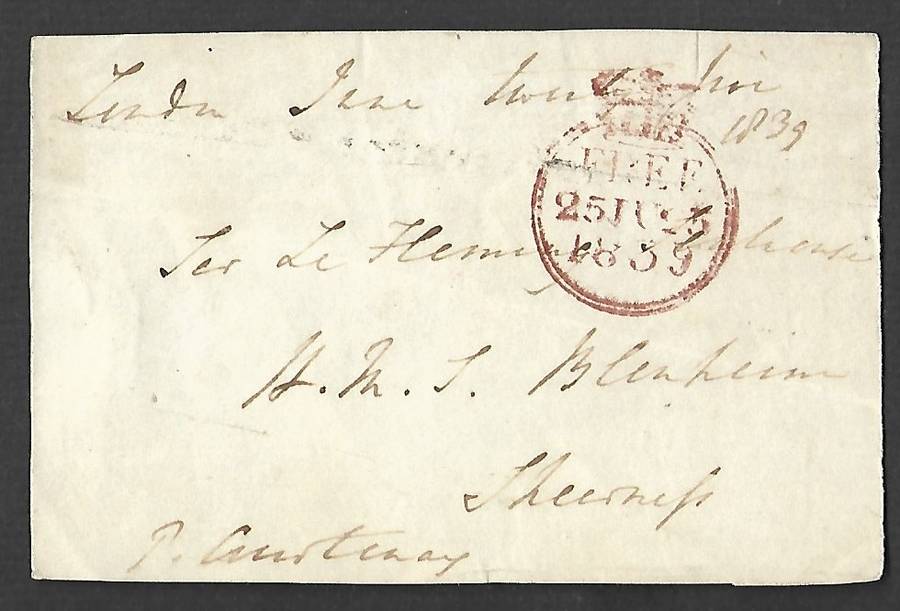 London June twenty five
1839
FREE
25JU25
1839
Sir Le Fleming Senhouse
H.M.S. Blenheim
Sheerness
P. Courtenay